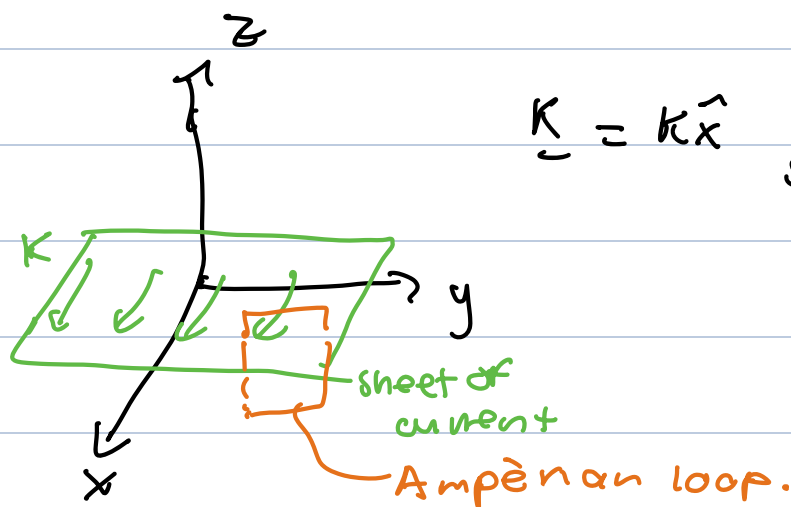 z
K = K x̂
K
y
sheet of
current
x
Ampèrian loop.